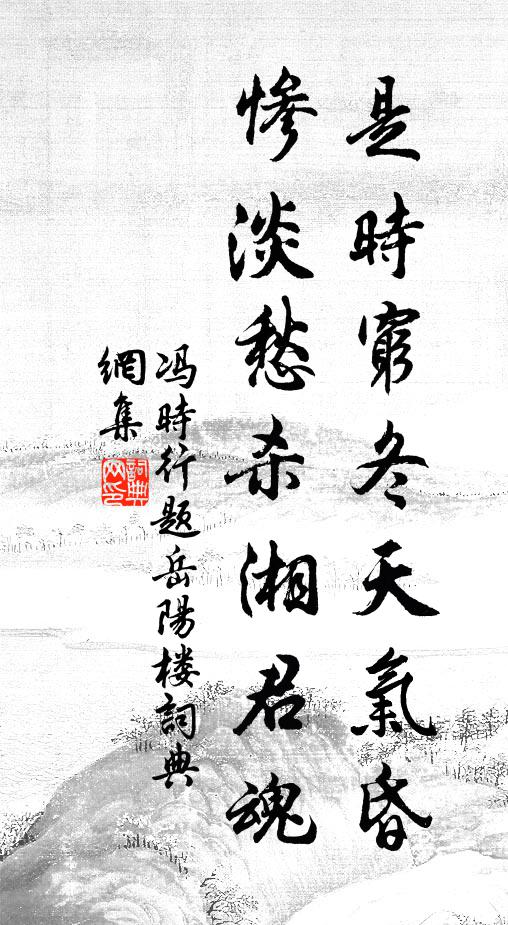 是時窮冬天氣昏
慘淡愁杀湘君魂
冯時行题岳陽楼詞典
網集
詞典
网印